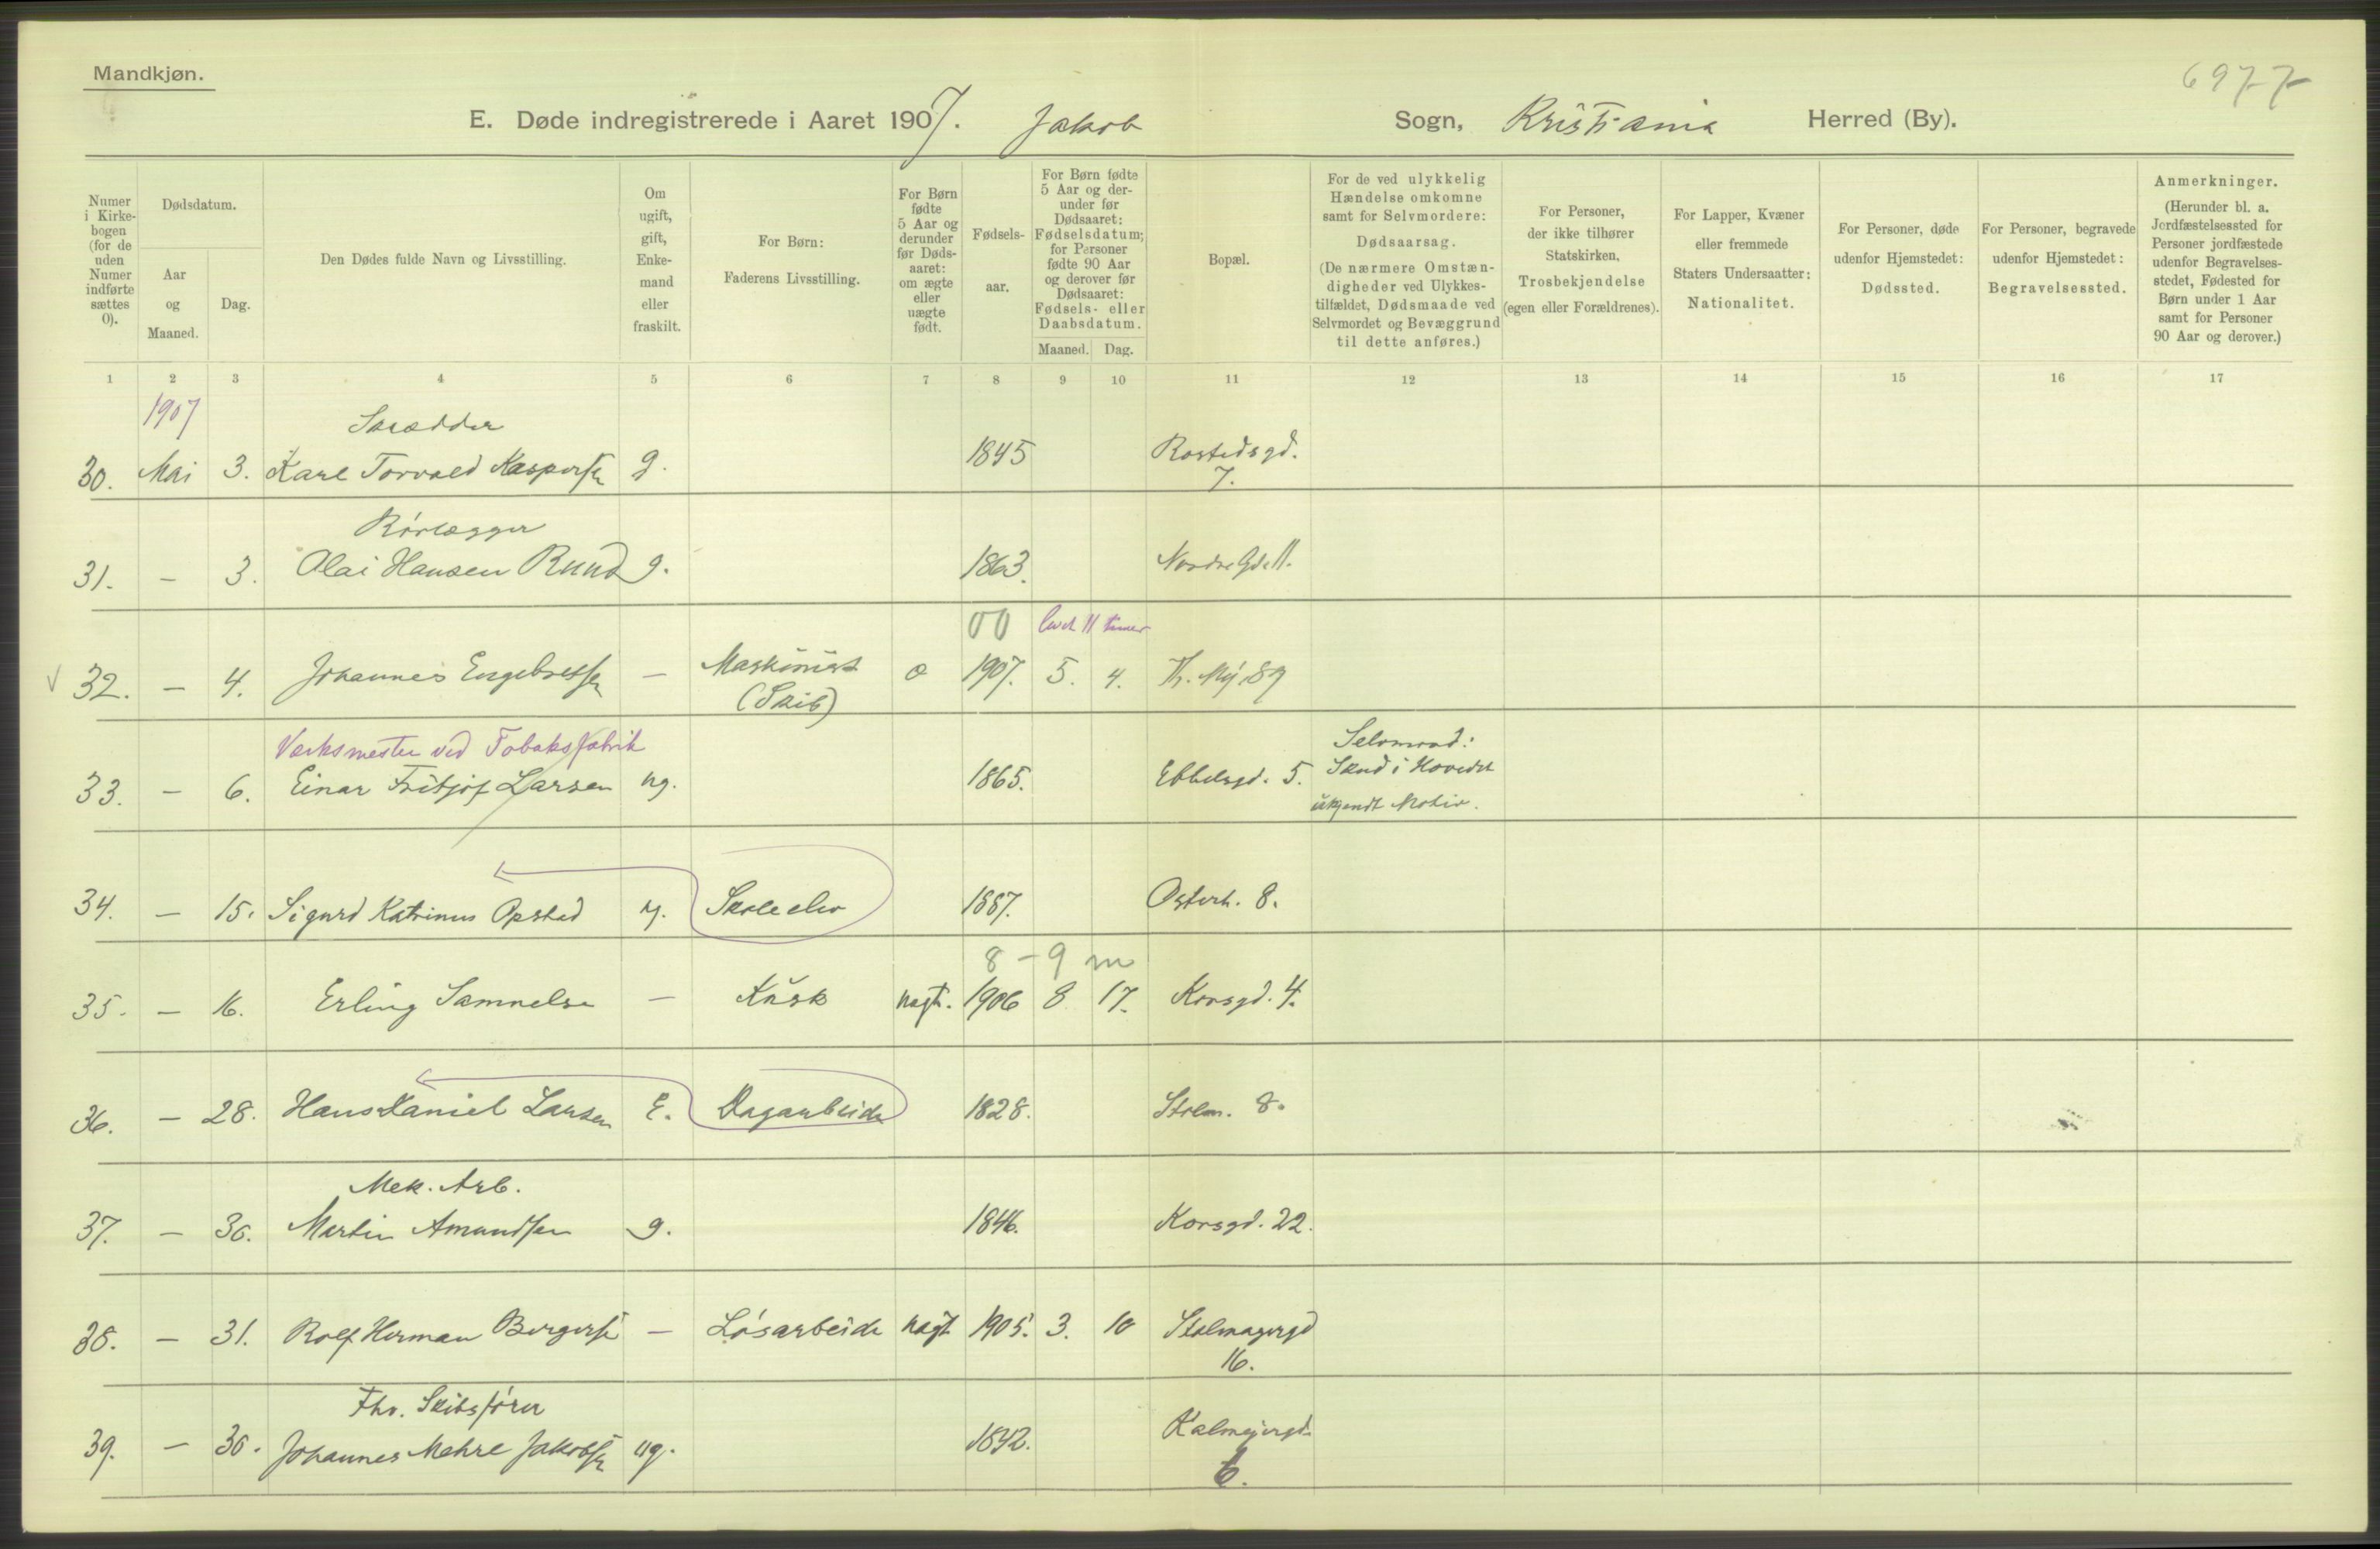 Mandkjøn.
6977
E. Døde indregistrerede i Aaret 1907. Jakob Sogn, Kristiania Herred (By).
Numer i Kirkebogen (for de uden Numer indførte sættes 0).
Dødsdatum.
Aar og Maaned.
Dag.
Den Dødes fulde Navn og Livsstilling.
Om ugift, gift, Enkemand eller fraskilt.
For Børn: Faderens Livsstilling.
For Børn fødte 5 Aar og derunder før Dødsaaret: om ægte eller uægte født.
Fødselsaar.
For Børn fødte 5 Aar og derunder før Dødsaaret: Fødselsdatum; for Personer fødte 90 Aar og derover før Dødsaaret: Fødsels- eller Daabsdatum.
Maaned. Dag.
Bopæl.
For de ved ulykkelig Hændelse omkomne samt for Selvmordere: Dødsaarsag. (De nærmere Omstændigheder ved Ulykkestilfældet, Dødsmaade ved Selvmordet og Bevæggrund til dette anføres.)
For Personer, der ikke tilhører Statskirken, Trosbekjendelse (egen eller Forældrenes).
For Lapper, Kvæner eller fremmede Staters Undersaatter: Nationalitet.
For Personer, døde udenfor Hjemstedet: Dødssted.
For Personer, begravede udenfor Hjemstedet: Begravelsessted.
Anmerkninger. (Herunder bl. a. Jordfæstelsessted for Personer jordfæstede udenfor Begravelsesstedet, Fødested for Børn under 1 Aar samt for Personer 90 Aar og derover.)
1 2 3 4 5 6 7 8 9 10 11 12 13 14 15 16 17
1907
Skrædder
30. Mai 3. Karl Torvald Kaspersen g. 1845 Rostedsgd.
7.
Rörlægger
31. — 3. Olai Hansen Ruud g. 1863. Nordregd. 11.
00 levet 11 timer
32. — 4. Johannes Engebretsen — Maskinist 1907. 5. 4. Th. My. 89
(Skib)
Værksmester ved Tobaksfabrik
33. — 6. Einar Fritjof Larsen ug. 1865. Ebbelsgd. 5.
Selvmord:
Skud i Hovedet
ukjendt Motiv.
34. — 15. Sigurd Katrinus Opstad Skoleelev 1887. Osterh. 8.
8 - 9 m
35. — 16. Erling Samuelsen — Kusk uægt. 1906 8 17. Korsgd. 4.
36. — 28. Hans Daniel Larsen E. Dagarbeider 1828. Stolm. 8.
Mek. Arb.
37. — 30. Martin Amundsen g. 1846. Korsgd. 22.
38. — 31. Rolf Herman Bergersen — Løsarbeider uægt 1905. 3. 10 Stolmagergd
16.
Fhv. Skibsfører
39. — 30. Johannes Mehre Jakobsen ug. 1842. Kalmeyergd.
6.